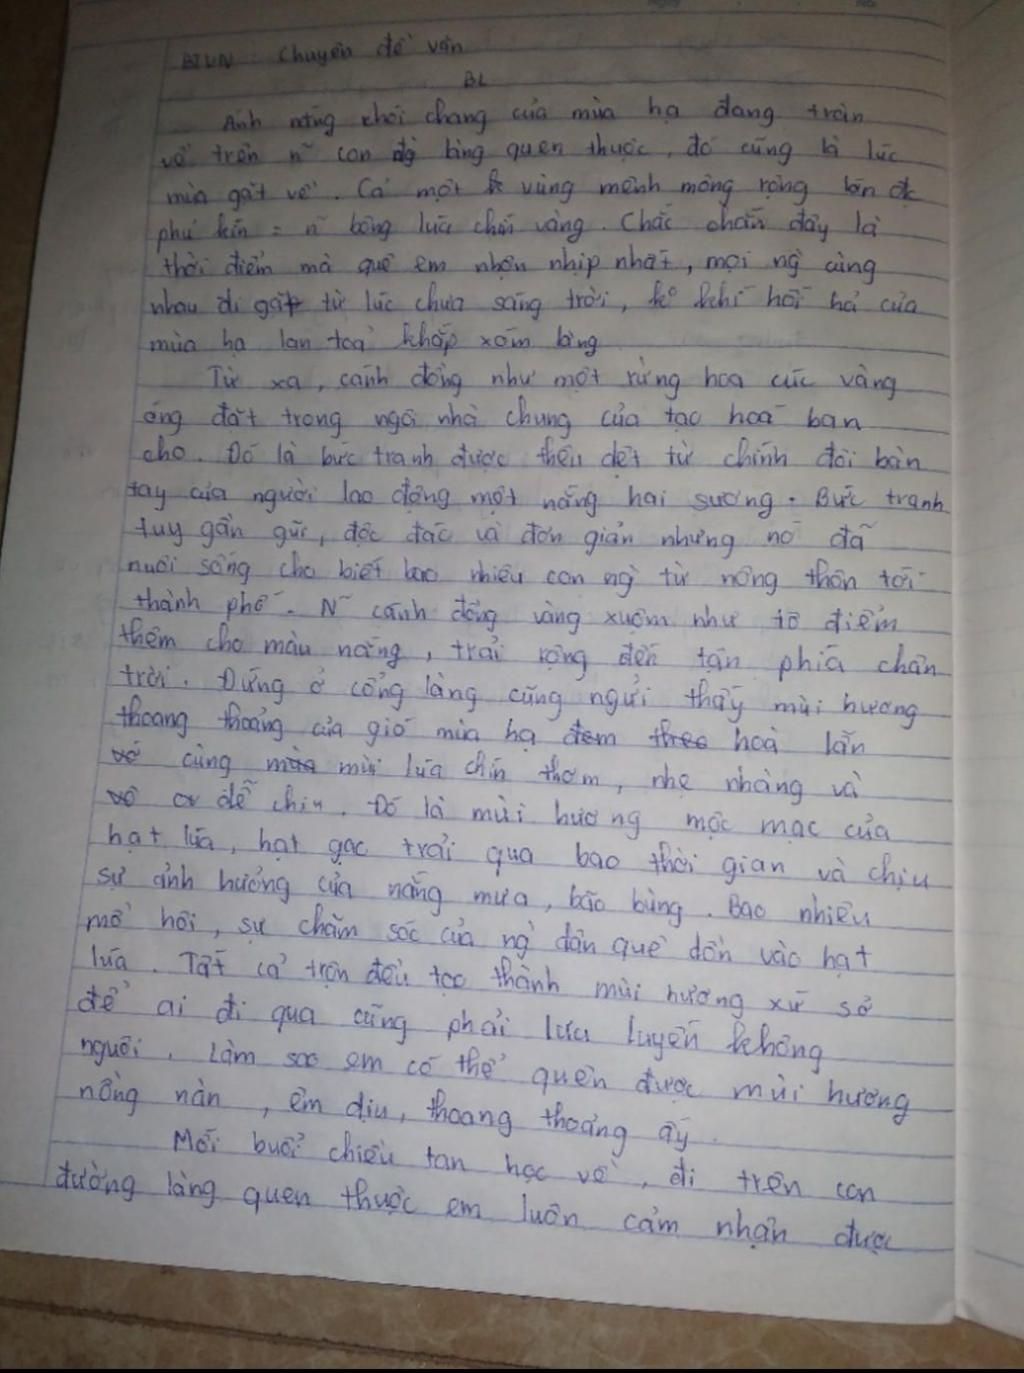 BTVN : Chuyên đề văn
BL
Ánh nắng chói chang của mùa hạ đang tràn
về trên n~ con làng quen thuộc, đó cũng là lúc
mùa gặt về. Cả một vùng mênh mông rộng lớn đc
phủ kín = n~ bông lúa chín vàng. Chắc chắn đây là
thời điểm mà quê em nhộn nhịp nhất, mọi ng` cùng
nhau đi gặt từ lúc chưa sáng trời, ko khí hối hả của
mùa hạ lan toả khắp xóm làng
Từ xa, cánh đồng như một rừng hoa cúc vàng
óng đặt trong ngôi nhà chung của tạo hoá ban
cho. Đó là bức tranh được thêu dệt từ chính đôi bàn
tay của người lao động một nắng hai sương. Bức tranh
tuy gần gũi, độc đắc và đơn giản nhưng nó đã
nuôi sống cho biết bao nhiêu con ng` từ nông thôn tới
thành phố. N~ cánh đồng vàng xuộm như tô điểm
thêm cho màu nắng, trải rộng đến tận phía chân
trời. Đứng ở cổng làng cũng ngửi thấy mùi hương
thoang thoảng của gió mùa hạ đem theo hoà lẫn
cùng mùi lúa chín thơm, nhẹ nhàng và
dễ chịu. Đó là mùi hương mộc mạc của
hạt lúa, hạt gạo trải qua bao thời gian và chịu
sự ảnh hưởng của nắng mưa, bão bùng. Bao nhiêu
mồ hôi, sự chăm sóc của ng` dân quê dồn vào hạt
lúa. Tất cả trộn đều tạo thành mùi hương xứ sở
để ai đi qua cũng phải lưu luyến không
nguôi. Làm sao em có thể quên được mùi hương
nồng nàn, êm dịu, thoang thoảng ấy.
Mỗi buổi chiều tan học về, đi trên con
đường làng quen thuộc em luôn cảm nhận được